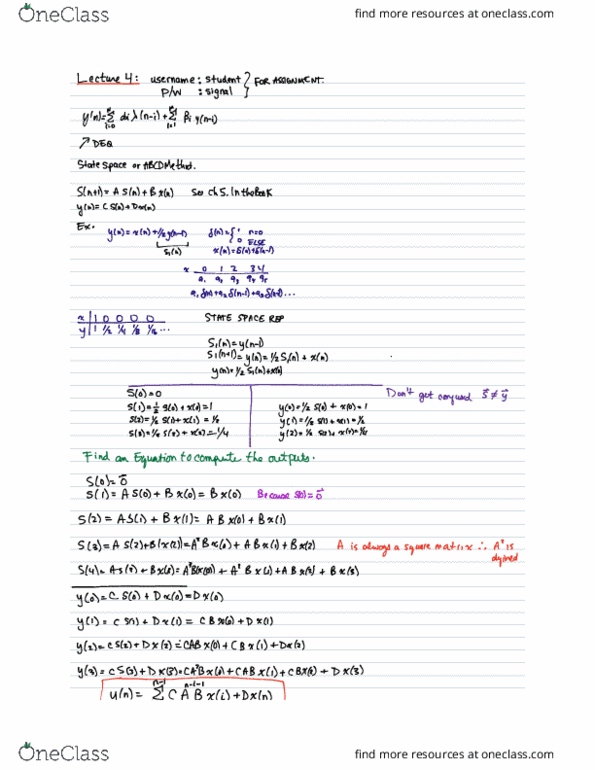 OneClass
find more resources at oneclass.com
Lecture 4: username: student } FOR ASSIGNMENT.
P/W : signal
y(n)=Σ di x(n-i)+Σ βi y(n-i)
i=0 i=1
↗DEQ
State Space or ABCD Method.
S(n+1)= A S(n)+ B x(n) See Ch 5. In the Book
y(n)= C S(n)+Dx(n)
Ex. y(n)= x(n)+1/2 y(n-1) δ(n)={ 1 n=0
0 ELSE
S1(n) x(n)=δ(n)+δ(n-1)
x 0 1 2 3 4
a1 δ(n)+a2 δ(n-1)+a3 δ(n-2)...
x | 1 0 0 0 0 STATE SPACE REP
y | 1 1/2 1/4 1/8 1/16 ...
S1(n)=y(n-1)
S1(n+1)=y(n)=1/2 S1(n)+ x(n)
y(n)=1/2 S1(n)+x(n)
S(0)=0 Don't get confused S⃗≠y⃗
S(1)=1/2 S(0)+ x(0)=1 y(0)=1/2 S(0)+ x(0)=1
S(2)=1/2 S(1)+x(1)=1/2 y(1)=1/2 S(1)+x(1)=1/2
S(3)=1/2 S(2)+x(2)=1/4 y(2)=
Find an Equation to compute the outputs.
S(0)=0⃗
S(1)= A S(0)+ B x(0)= B x(0) Because S(0)=0⃗
S(2)= AS(1)+ B x(1)= A B x(0)+ B x(1)
S(3)=A S(2)+B(x(2))=A²B x(0)+ A B x(1)+ B x(2) A is always a square matrix ∴ A² is
defined
S(4)=AS(3)+Bx(3)= +A² B x(1)+A B x(2)+ B x(3)
y(0)=C S(0)+ D x(0)=Dx(0)
y(1)= C S(1)+ D x(1)= C B x(0)+ D x(1)
y(2)=C S(2)+ D x(2)=CAB x(0)+CB x(1)+Dx(2)
y(3)=C S(3)+D x(3)=CA²B x(0)+CAB x(1)+CBx(2)+ D x(3)
n-1 n-1-i
y(n)= Σ C A B x(i)+Dx(n)
OneClass
find more resources at oneclass.com